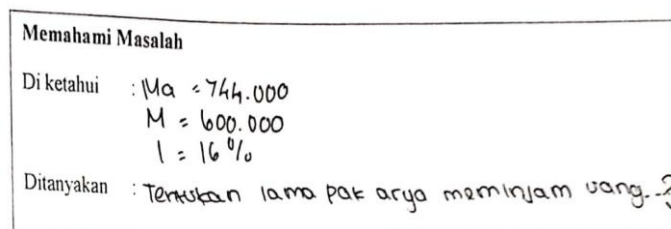 Memahami Masalah
Di ketahui : Ma = 744.000
M = 600.000
I = 16%
Ditanyakan : Tentukan lama pak arya meminjam uang..?